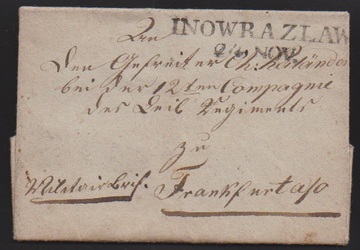 INOWRAZLAW
24 NOV
An
Den Gefreiter Ch:
bei der 12ten Compagnie
des Leib Regiments
zu
Militairbrif. Frankfurt a/o